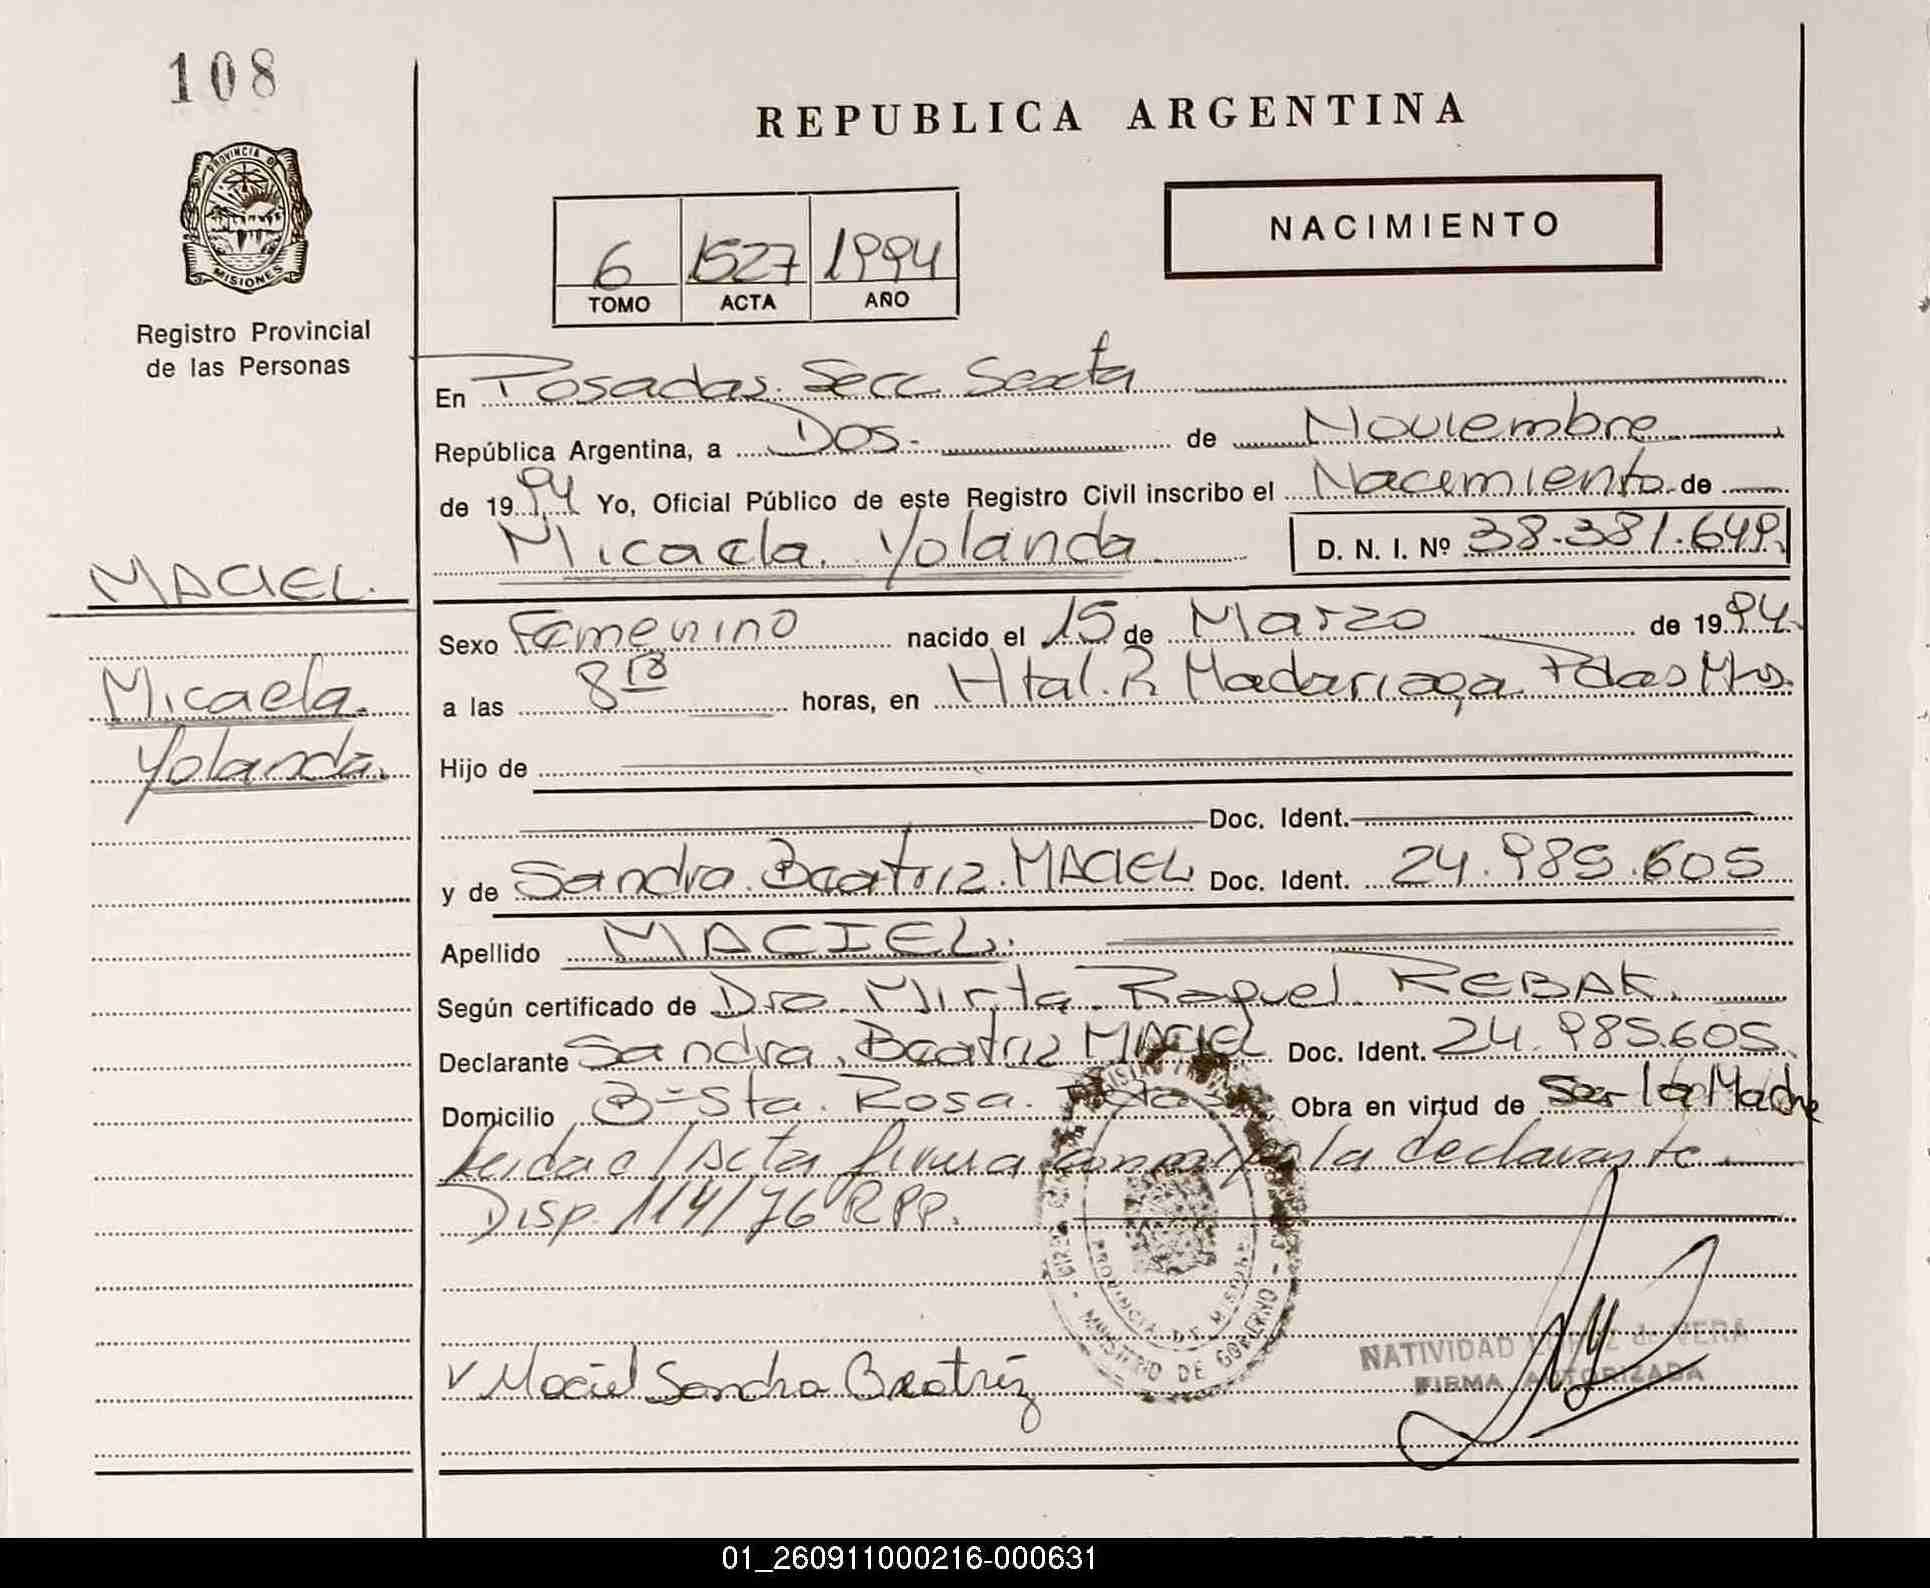 108
REPUBLICA ARGENTINA
PROVINCIA DE
MISIONES
Registro Provincial
de las Personas
NACIMIENTO
6 1527 1994
TOMO ACTA AÑO
En Posadas. Secc. Sexta
República Argentina, a Dos. de Noviembre
de 1994 Yo, Oficial Público de este Registro Civil inscribo el Nacimiento de
Micaela. Yolanda. D. N. I. Nº 38.381.649.
MACIEL.
Micaela.
Yolanda.
Sexo Femenino nacido el 15 de Marzo de 1994.
a las 8 horas, en Htal. R. Madariaga Pdas Mns.
Hijo de
Doc. Ident.
y de Sandra. Beatriz. MACIEL Doc. Ident. 24.985.605
Apellido MACIEL.
Según certificado de Dra. Mirta. Raquel. REBAK.
Declarante Sandra. Beatriz MACIEL Doc. Ident. 24.985.605.
Domicilio Bº Sta. Rosa. Obra en virtud de Ser la Madre
Leida e/Acta firma la declarante.
Disp. 114/76 RPP.
PROVINCIA DE MISIONES
MINISTERIO DE GOBIERNO
Maciel Sandra Beatriz
NATIVIDAD de VERA
FIRMA AUTORIZADA
01_260911000216-000631